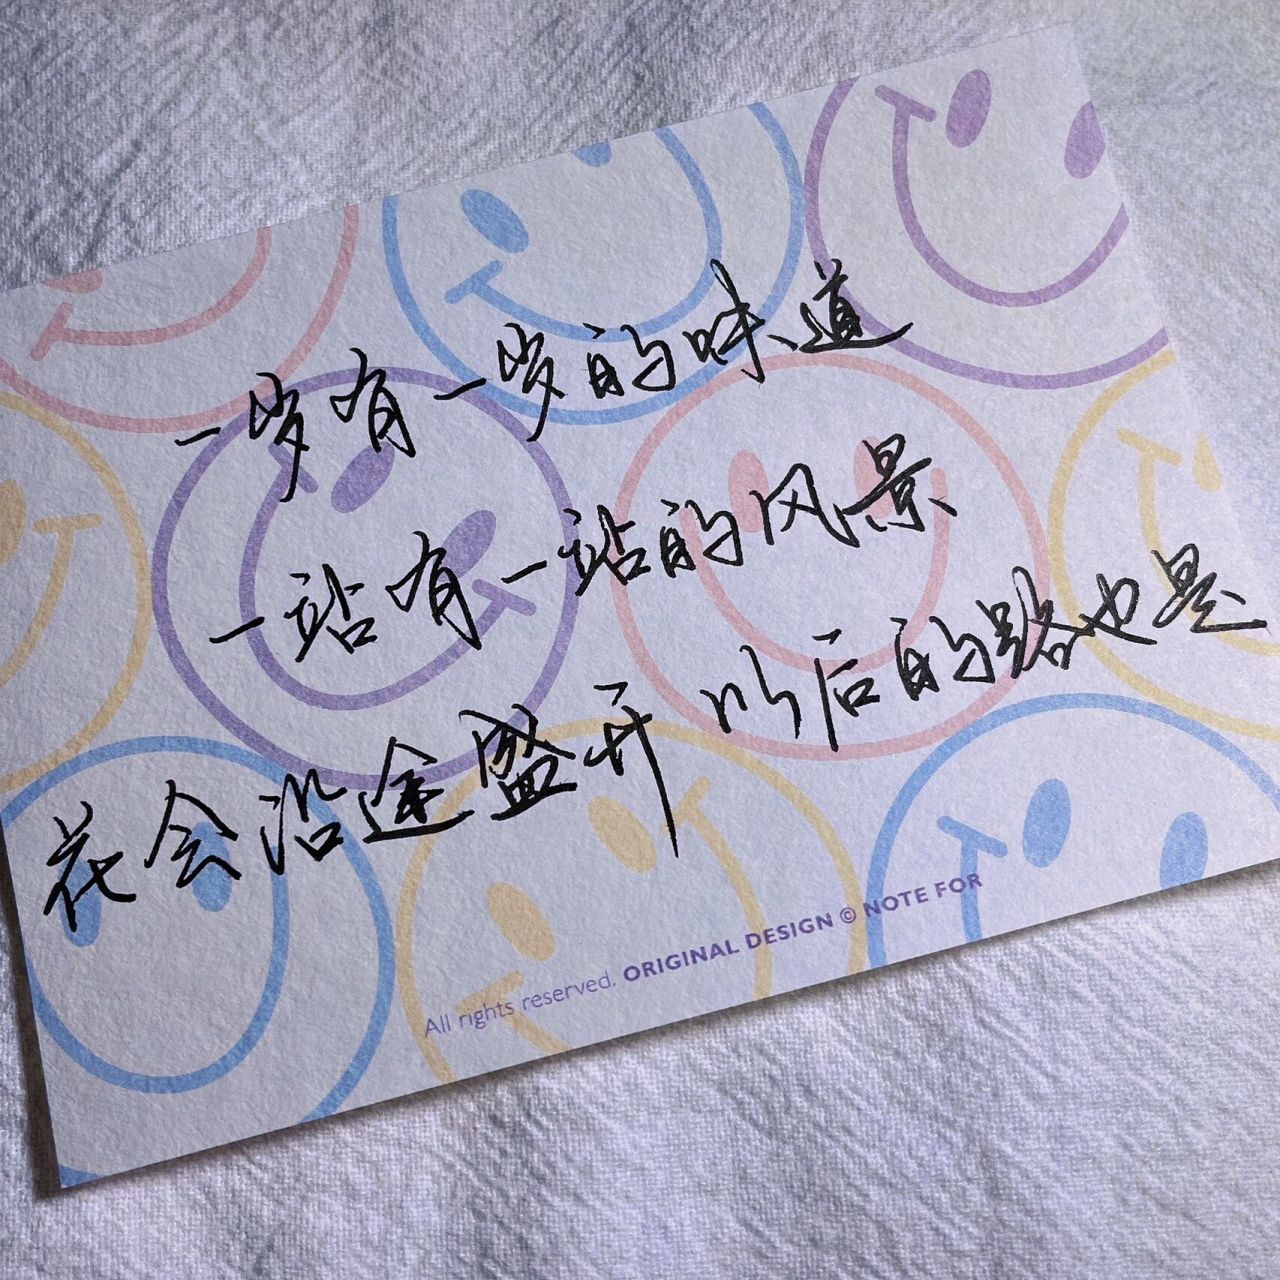 一岁有一岁的味道
一站有一站的风景
花会沿途盛开 以后的路也是
All rights reserved. ORIGINAL DESIGN © NOTE FOR